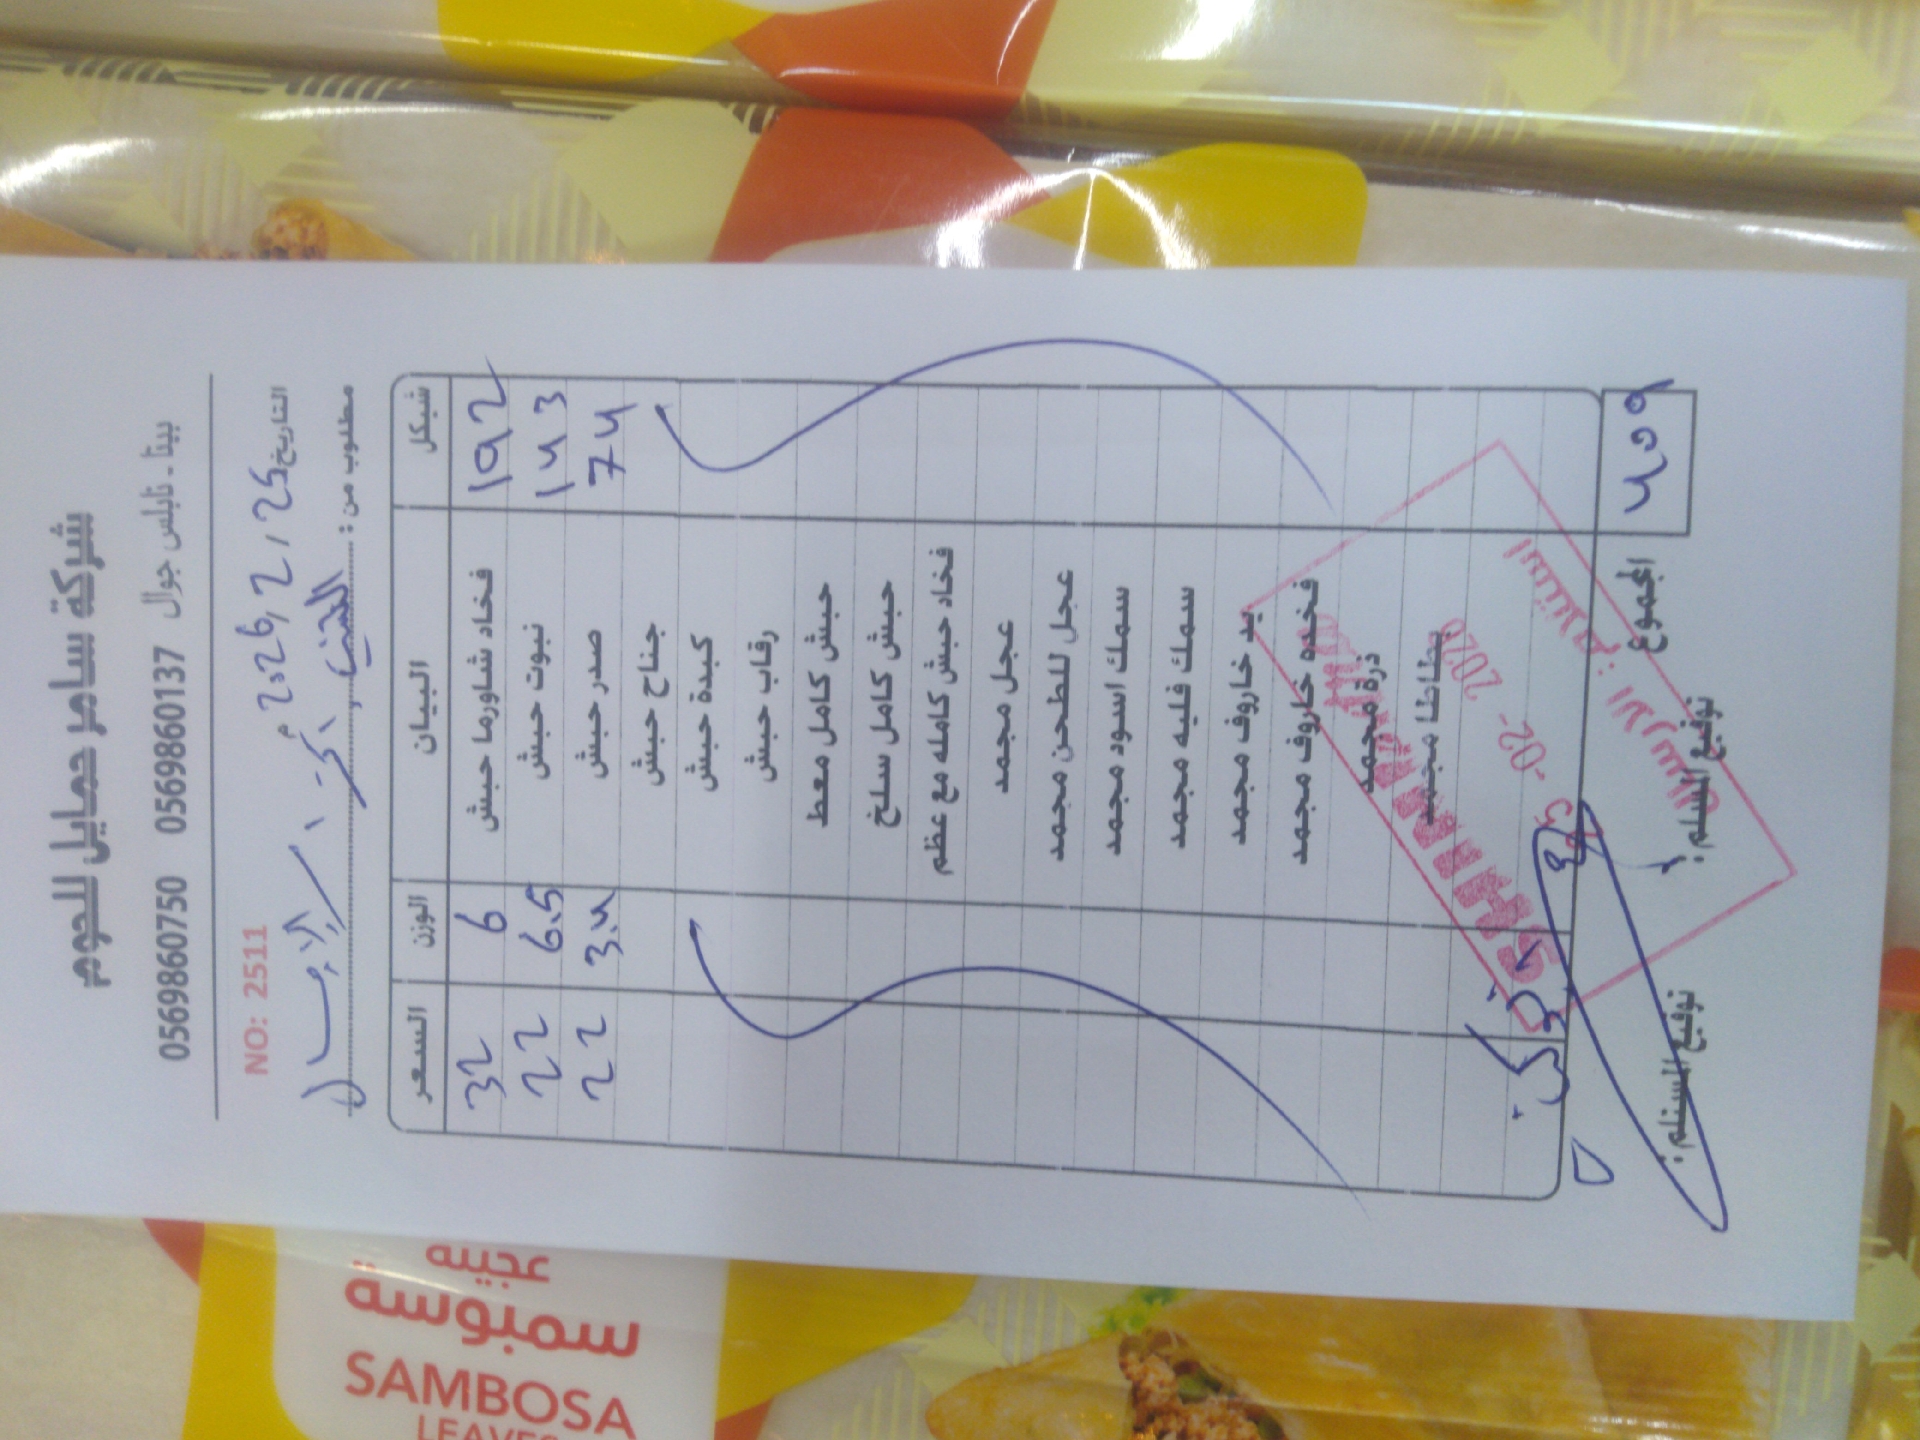 شركة سامر حمايل للحوم
بيتا - نابلس جوال 0569860137 0569860750
التاريخ 2026/2/25 م
NO: 2511
مطلوب من :
شيكل البيان الوزن السعر
192 فخاد شاورما حبش 6 32
143 نبوت حبش 6.5 22
74 صدر حبش 3.4 22
جناح حبش
كبدة حبش
رقاب حبش
حبش كامل معط
حبش كامل سلخ
فخاد حبش كامله مع عظم
عجل مجمد
عجل للطحن مجمد
سمك اسود مجمد
سمك فليه مجمد
يد خاروف مجمد
فخده خاروف مجمد
ذرة مجمد
بطاطا مجمد
409 المجموع
توقيع المسلم:
توقيع المستلم:
عجينة
سمبوسة
SAMBOSA
LEAVES